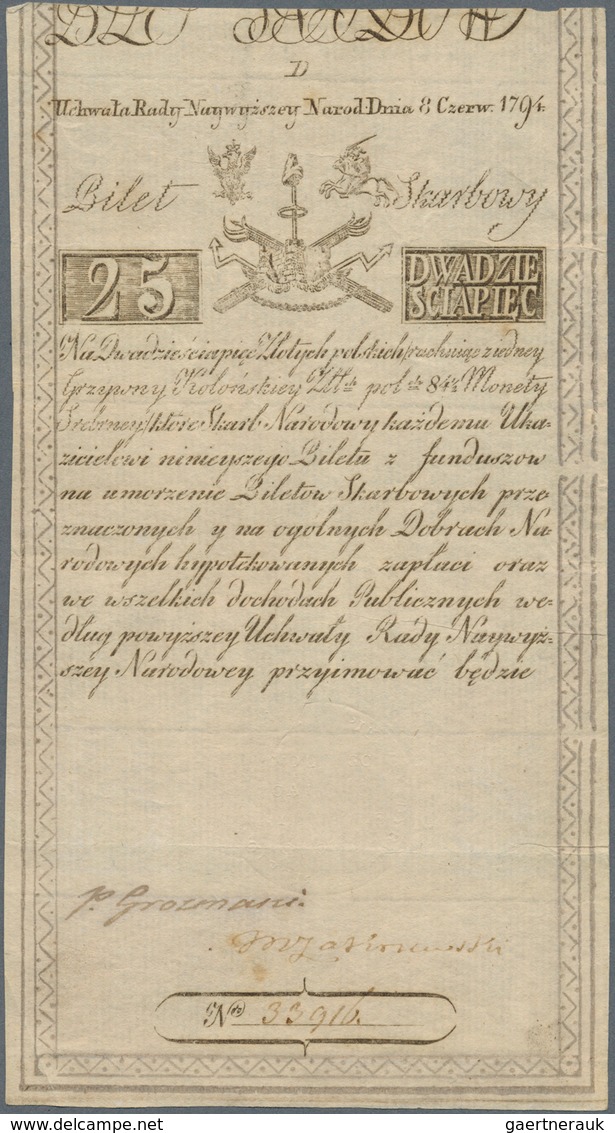 D
Uchwała Rady Naywyższey Narod: Dnia 8 Czerw: 1794.
Bilet Skarbowy
25 DWADZIE
ŚCIAPIĘC
Na Dwadzieściapięc Złotych polskich rachuiąc z iedney
Grzywny Kolońskiey Złł: pol: 84½ Monety
Srebrney które Skarb Narodowy każdemu Uka=
zicielowi ninieyszego Biletu z funduszow
na umorzenie Biletow Skarbowych prze=
znaczonych y na ogolnych Dobrach Na=
rodowych hypotekowanych zapłaci oraz
we wszelkich dochodach Publicznych we=
dług powyższey Uchwały Rady Naywyż=
szey Narodowey przyimować będzie
P. Grozmani.
No 33916.
hipstamp.com
gaertnerauk @ hipstamp.com